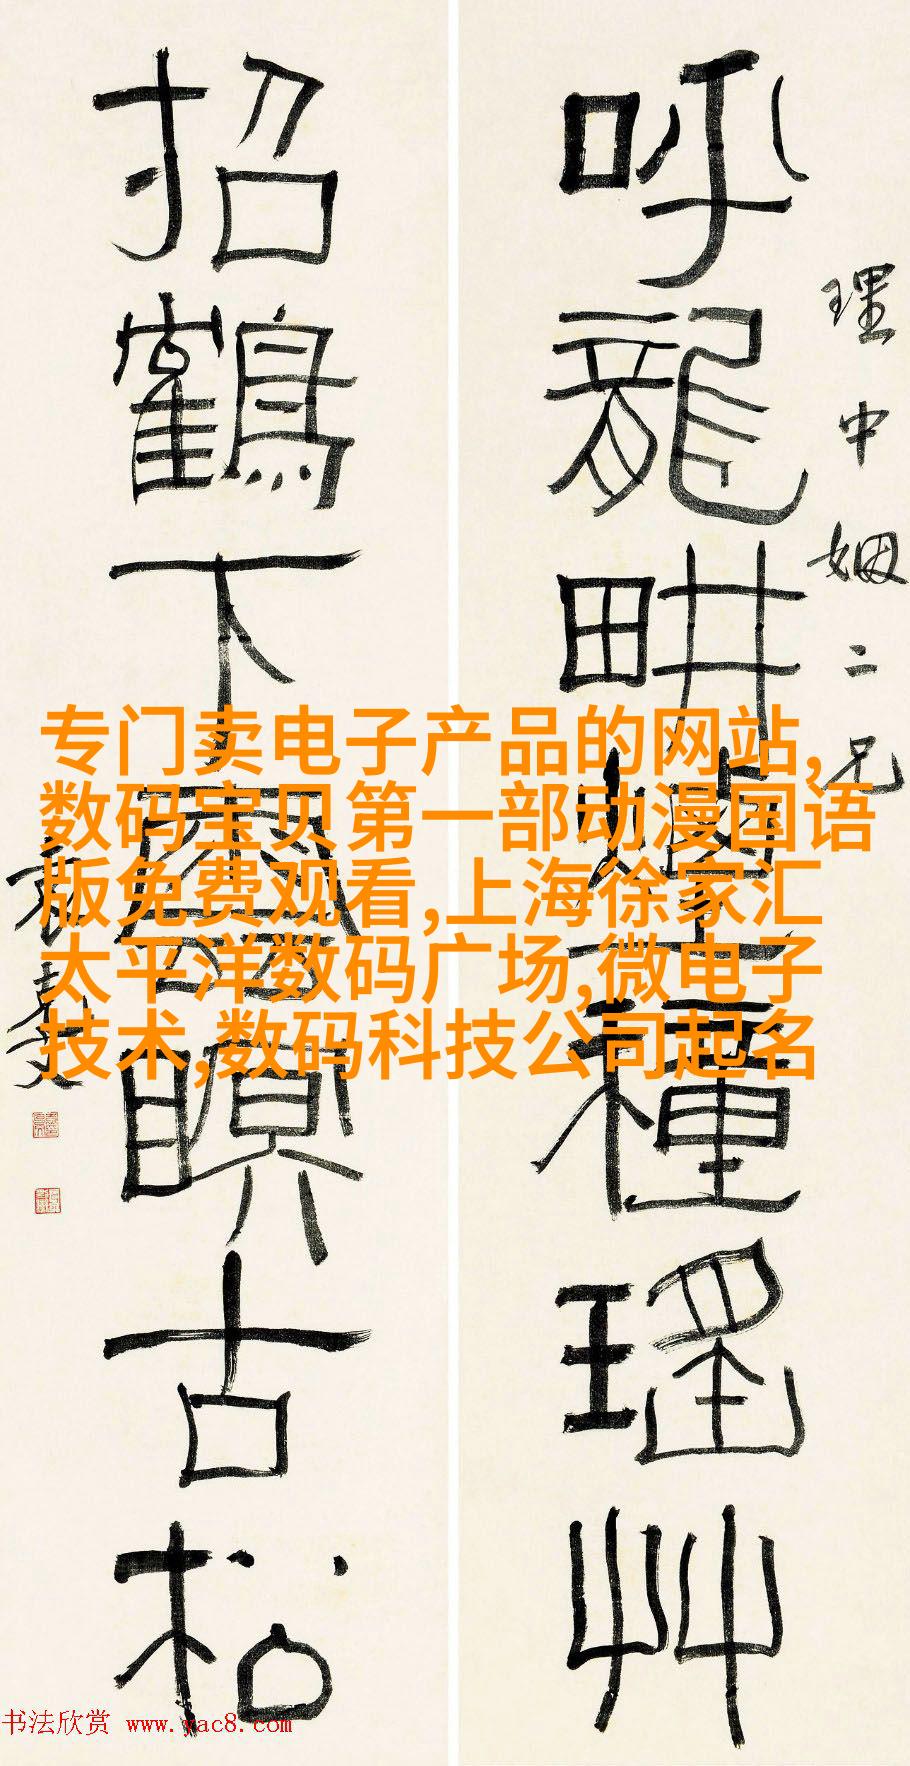 呼龍畊種瑤艸
理中姻二兄
招鶴下瞑古松
专门卖电子产品的网站,
数码宝贝第一部动漫国语
版免费观看,上海徐家汇
太平洋数码广场,微电子
技术,数码科技公司起名
书法欣赏 www.yac8.com